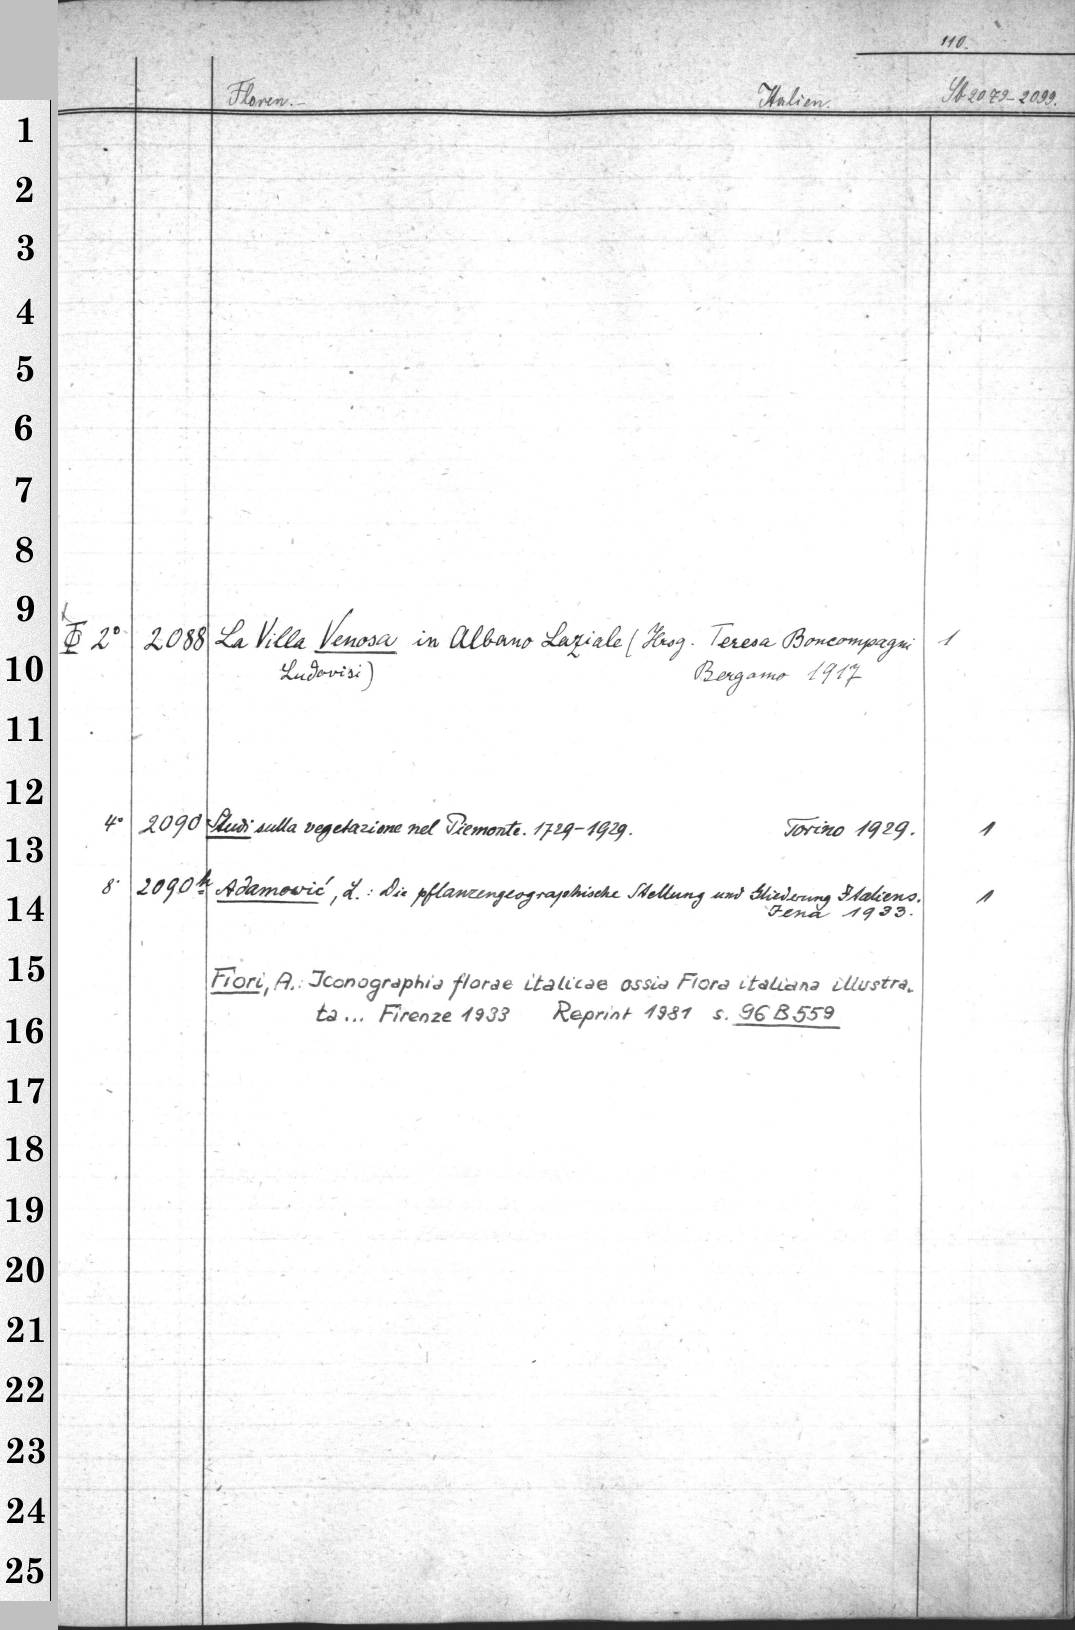 110.
Floren.- Italien. Sb 2079-2099.
1
2
3
4
5
6
7
8
9
2° 2088 La Villa Venosa in Albano Laziale (Hrsg. Teresa Boncompagni 1
10
Ludovisi) Bergamo 1917
11
12
4° 2090 Studi sulla vegetazione nel Piemonte. 1729-1929. Torino 1929. 1
13
8° 2090 Adamović, L.: Die pflanzengeographische Stellung und Gliederung Italiens. 1
14
Jena 1933.
15
Fiori, A.: Iconographia florae italicae ossia Flora italiana illustra-
ta... Firenze 1933 Reprint 1981 s. 96 B 559
16
17
18
19
20
21
22
23
24
25